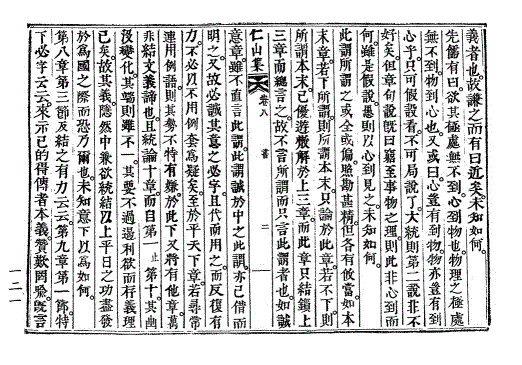 義者也故謙之而有曰近矣未知如何
先儒有曰欲其極處無不到心到物也物理之極處
無不到物到心也又或曰心豈有到物物亦豈有到
心乎只可假設看不可局說了大統則第二說非不
好矣但章句說旣曰窮至事物之理則此非心到而
何雖是假說愚則以心到見之未知如何
此謂所謂之或全或偏照勘甚精但各有攸當如本
末章若下所謂則所謂本末只論於此章若不下則
所謂本末已優遊厭解於上三章而此章只結鎖上
三章而總言之故不言所謂而只言此謂者也如誠
仁山集 卷八 書 二
意章雖不直言此謂此謂誠於中之此謂亦已借而
明之又故必誠其意之必字且代而用之而反復有
力不必以不用例套爲疑矣至於平天下章若尋常
連用例語則其勢不特有嫌於此下又將有他章萬
非結文義諦也且統論十章而自第一止第十其幽
沒變化其端則雖不一其要不過遏利欲而存義理
已矣故其義隱然中兼欲統結以上平日之功盡發
於爲國之際而恐乃爾也未知意下以爲如何
第八章第三節反結之有力云云第九章第一節特
下必字云云來示已的得傳者本義贊歎罔喩旣言
一二一